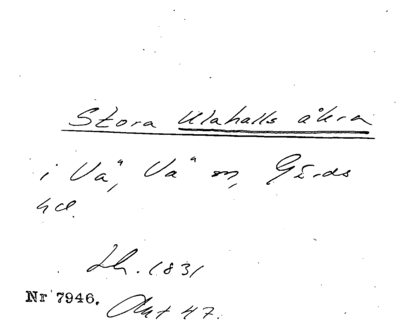 Stora Ulahalls åkra
i Vä, Vä sn, Gärds
hd.
Lh. 1831
Nr 7946. Akt 47.